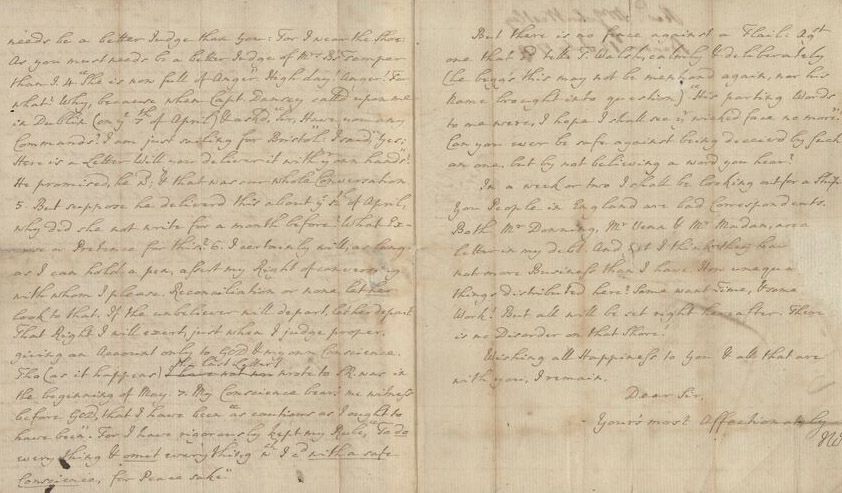 needs be a better Judge than you: For I wear the Shoe:
As you must needs be a better Judge of Mrs B's Temper
than I. 4 "She is now full of Anger". High day! Anger! For
what? Why, because when Capt. Dansey call'd upon me
in Dublin (on ye 7th of April) & ask'd, "Sir, Have you any
Commands? I am just sailing for Bristol: I said "Yes:
Here is a Letter. Will you deliver it with yr own hands"?
He promised, he w'd; & that was our whole Conversation.
5. But suppose he deliverd this about ye of April,
why did she not write for a month before? What Ex-
cuse or Pretence for this? 6. I certainly will, as long
as I can hold a pen, assert my Right of conversing
with whom I please. Reconciliation or none, let her
look to that. If the unbeliever will depart, let her depart
That Right I will exert, just when I judge proper,
giving an Account only to GOD & my own Conscience.
Tho (as it happens) the last Letter I wrote to SR. was in
the beginning of May. 7. My Conscience bears me witness
before GOD, that I have been as cautious as I ought to
have been". For I have rigorously kept my Rule, "To do
every thing & omit every thing, wch I c'd with a safe
Conscience, for Peace sake"
But there is no fence against a Flail: Agst
one that tells T. Walsh, calmly & deliberately
(he beggs this may not be mentiond again, nor his
Name brought into question) "His parting Words
to me were, I hope I shall see yr wicked face no more".
Can you ever be safe against being deceived by such
an one, but by not believing a word you hear?
In a week or two I shall be looking out for a Ship.
You People in England are bad Correspondents.
Both Mr Downing, Mr Venn & Mr Madan, are a
letter in my debt. And yet I think they have
not more Business than I have. How unequa
things distributed here! Some want Time, & some
Work! But all will be set right hereafter. There
is no Disorder on that Shore!
Wishing all Happiness to You & all that are
with you, I remain,
Dear Sir,
Your's most Affectionately
JW